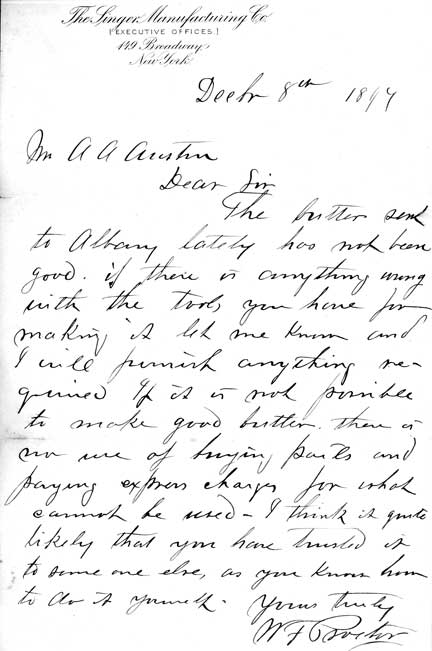 The Singer Manufacturing Co
[EXECUTIVE OFFICES.]
149 Broadway
New York
Decbr 8th 1894
Mr A A Austin
Dear Sir
The butter sent
to Albany lately has not been
good. if there is anything wrong
with the tools you have for
making it let me know and
I will furnish anything re-
quired If it is not possible
to make good butter. there is
no use of buying pails and
paying express charges for what
cannot be used - I think it quite
likely that you have trusted it
to some one else, as you know how
to do it yourself. Yours truly
W F Proctor